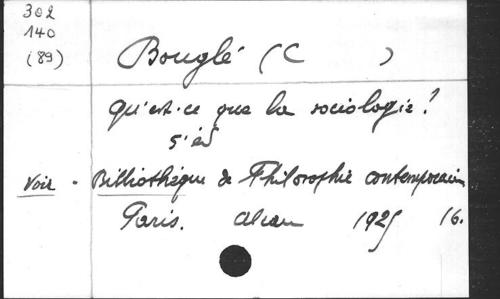 302
140
(89)
Bouglé (C )
Qu'est-ce que la sociologie?
5'éd
Voir - Bibliothèque de Philosophie contemporaine
Paris. Alcan 1925 16.